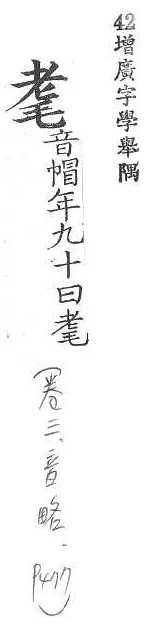 42增廣字學舉隅
耄音帽年九十曰耄
(卷三、音略.P477)